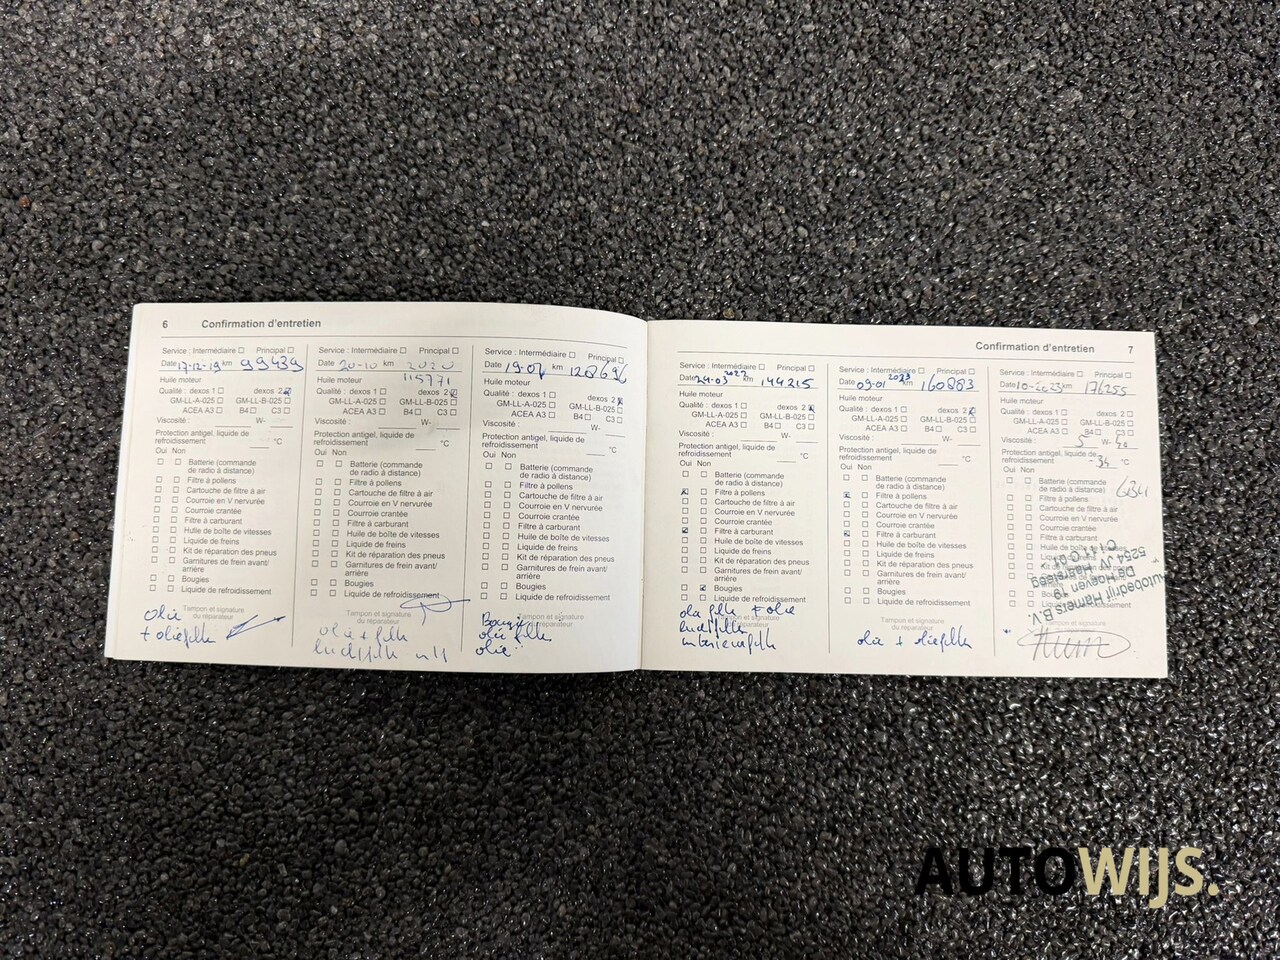 6 Confirmation d'entretien
Service : Intermédiaire Principal
Date 17-12-19 km 99439
Huile moteur
Qualité : dexos 1 dexos 2
GM-LL-A-025 GM-LL-B-025
ACEA A3 B4 C3
Viscosité : W-
Protection antigel, liquide de
refroidissement °C
Oui Non
Batterie (commande
de radio à distance)
Filtre à pollens
Cartouche de filtre à air
Courroie en V nervurée
Courroie crantée
Filtre à carburant
Huile de boîte de vitesses
Liquide de freins
Kit de réparation des pneus
Garnitures de frein avant/
arrière
Bougies
Liquide de refroidissement
Tampon et signature
du réparateur
olie
+ oliefilter
Service : Intermédiaire Principal
Date 20-10 km 2020
115771
Huile moteur
Qualité : dexos 1 dexos 2
GM-LL-A-025 GM-LL-B-025
ACEA A3 B4 C3
Viscosité : W-
Protection antigel, liquide de
refroidissement °C
Oui Non
Batterie (commande
de radio à distance)
Filtre à pollens
Cartouche de filtre à air
Courroie en V nervurée
Courroie crantée
Filtre à carburant
Huile de boîte de vitesses
Liquide de freins
Kit de réparation des pneus
Garnitures de frein avant/
arrière
Bougies
Liquide de refroidissement
Tampon et signature
du réparateur
olie + filter
luchtfilter
Service : Intermédiaire Principal
Date km 128696
Huile moteur
Qualité : dexos 1 dexos 2
GM-LL-A-025 GM-LL-B-025
ACEA A3 B4 C3
Viscosité : W-
Protection antigel, liquide de
refroidissement °C
Oui Non
Batterie (commande
de radio à distance)
Filtre à pollens
Cartouche de filtre à air
Courroie en V nervurée
Courroie crantée
Filtre à carburant
Huile de boîte de vitesses
Liquide de freins
Kit de réparation des pneus
Garnitures de frein avant/
arrière
Bougies
Liquide de refroidissement
Tampon et signature
du réparateur
Bougie
olie filter
olie
Confirmation d'entretien 7
Service : Intermédiaire Principal
Date 24-03 2022 km 144215
Huile moteur
Qualité : dexos 1 dexos 2
GM-LL-A-025 GM-LL-B-025
ACEA A3 B4 C3
Viscosité : W-
Protection antigel, liquide de
refroidissement °C
Oui Non
Batterie (commande
de radio à distance)
Filtre à pollens
Cartouche de filtre à air
Courroie en V nervurée
Courroie crantée
Filtre à carburant
Huile de boîte de vitesses
Liquide de freins
Kit de réparation des pneus
Garnitures de frein avant/
arrière
Bougies
Liquide de refroidissement
Tampon et signature
du réparateur
olie filter + olie
luchtfilter
interieurfilter
Service : Intermédiaire Principal
Date 09-01 2023 km 160883
Huile moteur
Qualité : dexos 1 dexos 2
GM-LL-A-025 GM-LL-B-025
ACEA A3 B4 C3
Viscosité : W-
Protection antigel, liquide de
refroidissement °C
Oui Non
Batterie (commande
de radio à distance)
Filtre à pollens
Cartouche de filtre à air
Courroie en V nervurée
Courroie crantée
Filtre à carburant
Huile de boîte de vitesses
Liquide de freins
Kit de réparation des pneus
Garnitures de frein avant/
arrière
Bougies
Liquide de refroidissement
Tampon et signature
du réparateur
olie + oliefilter
Service : Intermédiaire Principal
Date 10-2023 km 176255
Huile moteur
Qualité : dexos 1 dexos 2
GM-LL-A-025 GM-LL-B-025
ACEA A3 B4 C3
Viscosité : 5 W-
Protection antigel, liquide de
refroidissement -34 °C
Oui Non
Batterie (commande
de radio à distance)
Filtre à pollens
Cartouche de filtre à air
Courroie en V nervurée
Courroie crantée
Filtre à carburant
Huile de boîte de vitesses
Liquide de freins
Kit de réparation des pneus
Garnitures de frein avant/
arrière
Bougies
Liquide de refroidissement
Autobedrijf Hamers B.V.
De Hoeven 19
AUTOWIJS.